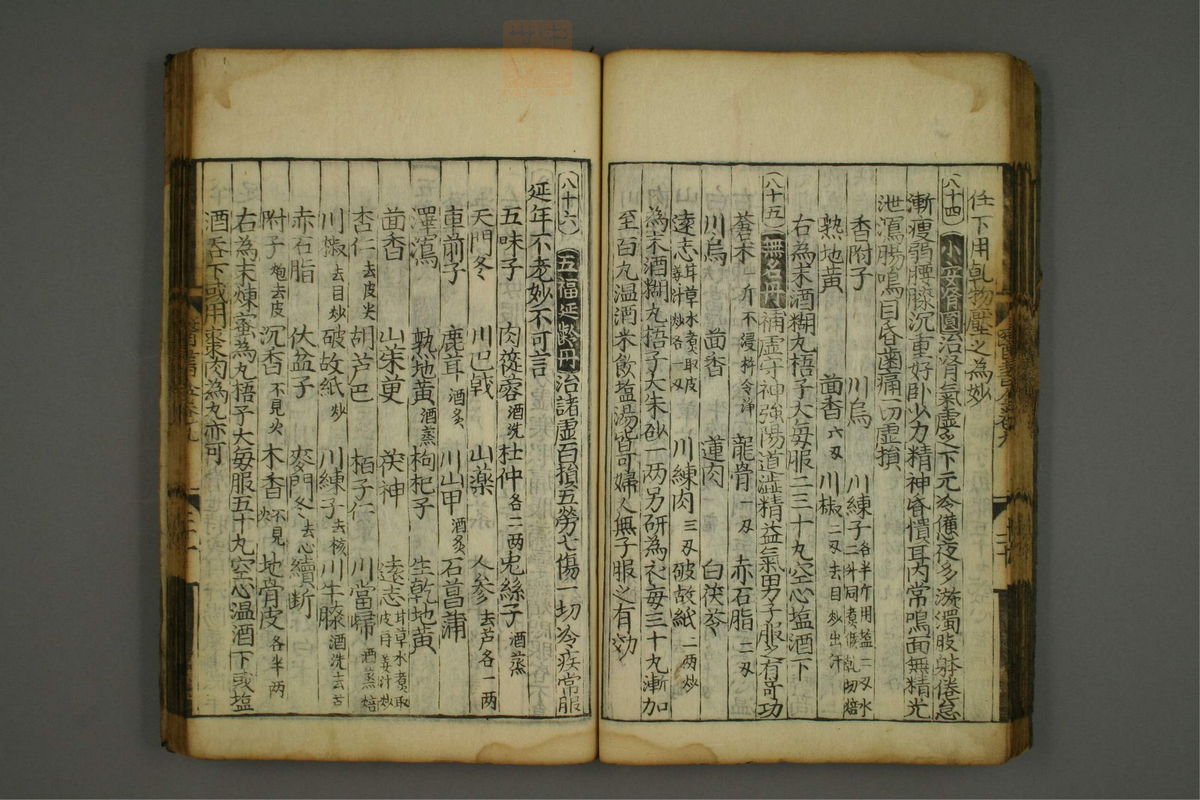 任下用乾物壓之為妙
八十四 小安腎圓 治腎氣虛乏下元冷憊夜多漩濁肢躰倦怠
漸瘦弱腰膝沉重好卧少力精神昏憒耳內常鳴面無精光
泄瀉腸鳴目昏齒痛一切虛損
香附子 川烏 川練子各半斤用鹽二刄水二升同煮候乾切焙
熟地黃 茴香六刄 川椒二刄去目炒出汗
右為末酒糊丸梧子大每服二三十丸空心塩酒下
八十五 無名丹 補虛守神強陽道澁精益氣男子服之有奇功
蒼朮一斤不浸杵令淨 龍骨一刄 赤石脂二刄
川烏 茴香 蓮肉 白茯苓
遠志耳草水煮取皮姜汁炒各一刄 川練肉三刄 破故紙二両炒
為末酒糊丸梧子大朱砂一両另研為衣每三十丸漸加
至百丸温酒米飲塩湯皆可婦人無子服之有効
八十六 五福延齡丹 治諸虛百損五勞七傷一切冷疾常服
延年不老妙不可言
五味子 肉蓯蓉酒洗 杜仲各二両 兎絲子酒蒸
天門冬 川巴戟 山藥 人參去芦各一両
車前子 鹿茸酒炙 川山甲酒炙 石菖蒲
澤瀉 熟地黃酒蒸 枸杞子 生乾地黃
茴香 山茱萸 茯神 遠志耳草水煮取皮用姜汁炒
杏仁去皮尖 胡芦巴 栢子仁 川當歸酒蒸焙
川椒去目炒 破故紙炒 川練子去核 川牛膝酒洗去苦
赤石脂 伏盆子 麥門冬去心 續斷
附子炮去皮 沉香不見火 木香不見火 地骨皮各半両
右為末煉蜜為丸梧子大每服五十丸空心温酒下或塩
酒吞下或用棗肉為丸亦可